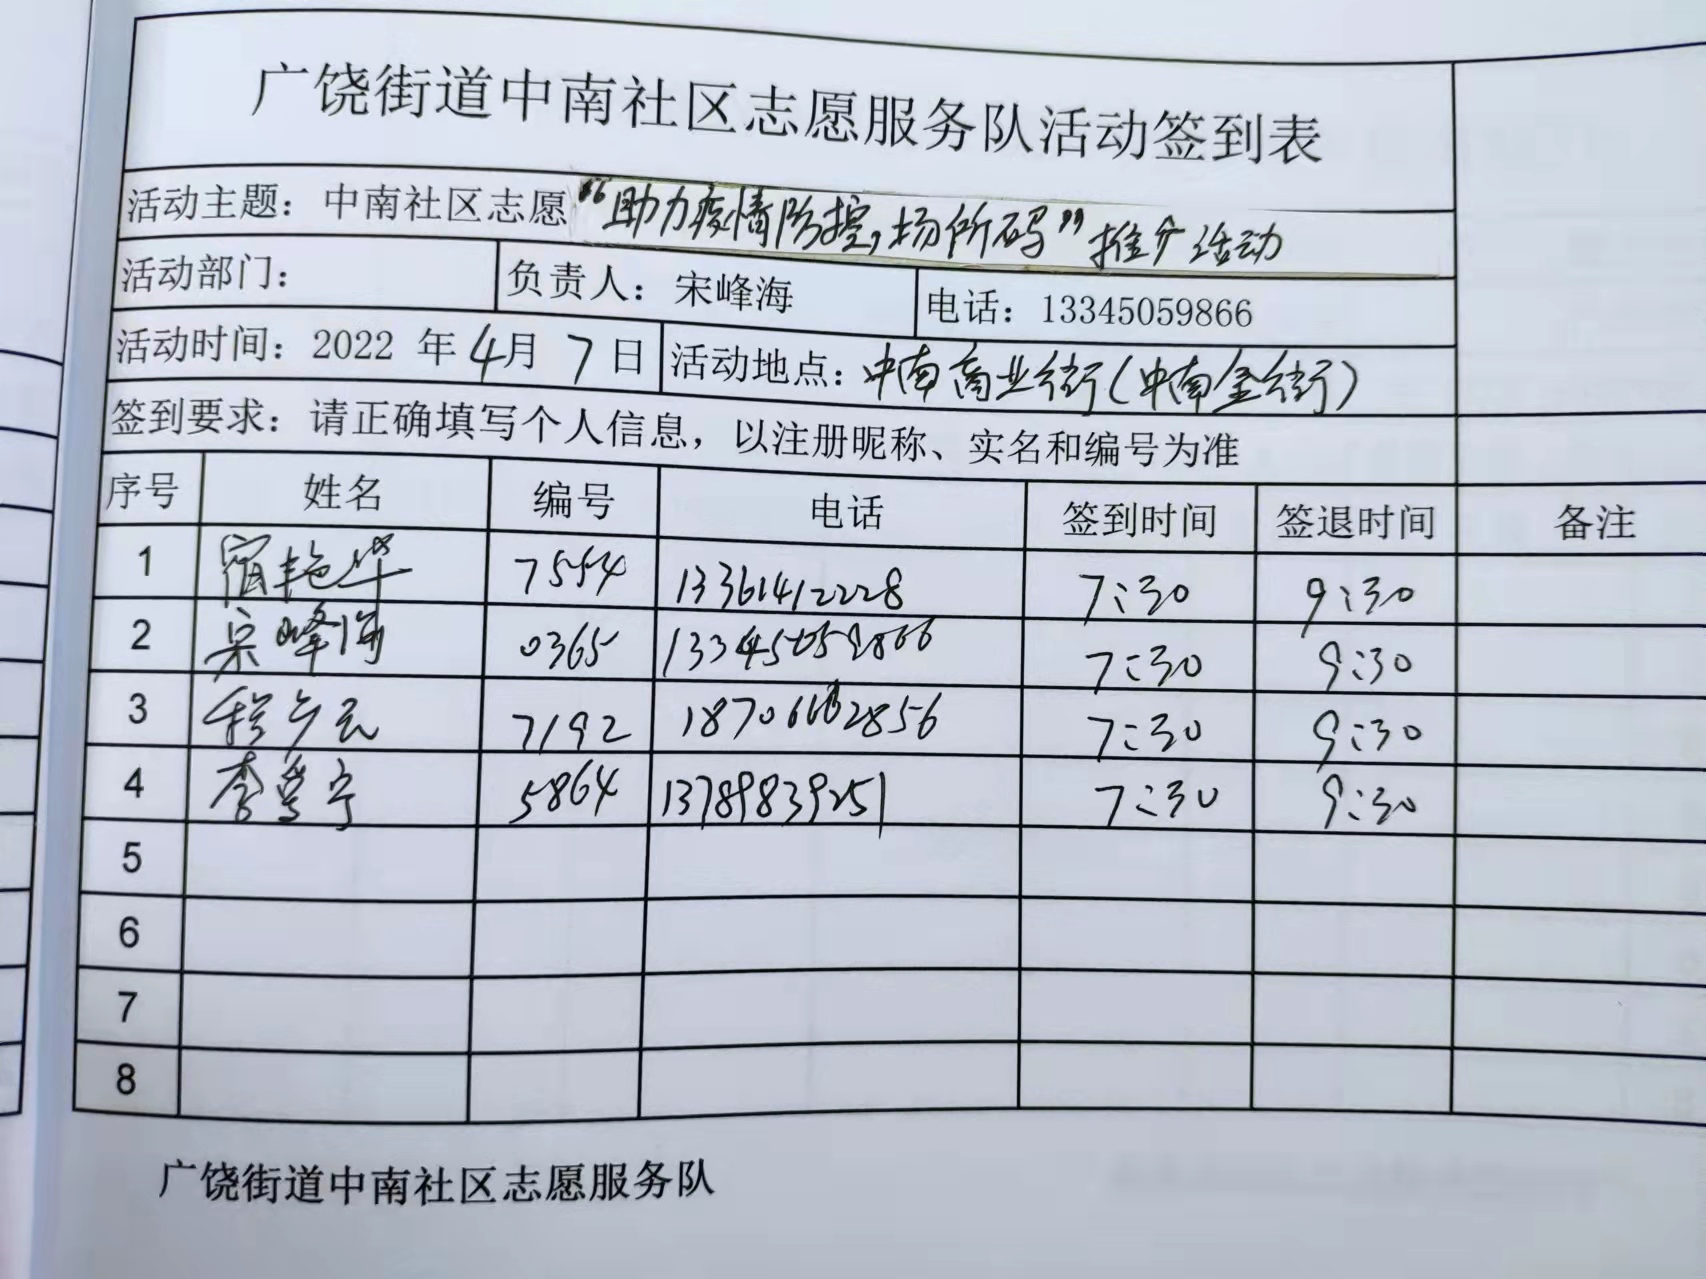 广饶街道中南社区志愿服务队活动签到表
活动主题：中南社区志愿“助力疫情防控，场所码”推广活动
活动部门： 负责人：宋峰海 电话：13345059866
活动时间：2022 年 4月 7日 活动地点：中南商业街（中南金街）
签到要求：请正确填写个人信息，以注册昵称、实名和编号为准
序号 姓名 编号 电话 签到时间 签退时间 备注
1 宿艳华 7554 13361412228 7:30 9:30
2 宋峰海 0365 13345059866 7:30 9:30
3 7192 18706662856 7:30 9:30
4 李 宁 5864 13789839251 7:30 9:30
5
6
7
8
广饶街道中南社区志愿服务队